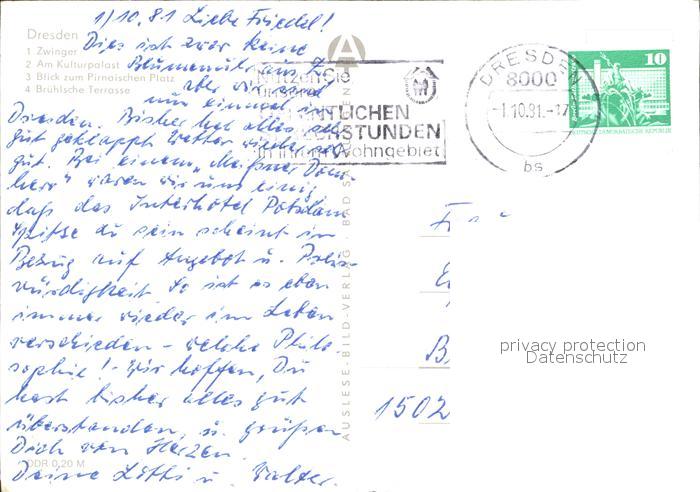 1/10.81 Liebe Friedel!
Dies ist zwar keine
Blumenuhr aus
aber wir sind
nun einmal in
Dresden. Bisher hat alles sehr
gut geklappt Wetter wieder
gut. Bei einem „Meißner Dom-
herr" waren wir uns einig
daß das Interhotel Potsdam
Spitze zu sein scheint in
Bezug auf Angebot u. Preis-
würdigkeit So ist es eben
immer wieder im Leben
verschieden – welche Philo
sophie! – Wir hoffen, Du
hast bisher alles gut
überstanden, u. grüßen
Dich von Herzen
Deine Lotti u. Walter.
Dresden
1 Zwinger
2 Am Kulturpalast
3 Blick zum Pirnaischen Platz
4 Brühlsche Terrasse
DDR 0,20 M
AUSLESE-BILD-VERLAG · BAD
Nutzen Sie
unsere
ÖFFENTLICHEN
STUNDEN
in Ihrem Wohngebiet
DRESDEN
8000
-1.10.81.-17
bs
10
DEUTSCHE DEMOKRATISCHE REPUBLIK
F
B
1502
privacy protection
Datenschutz